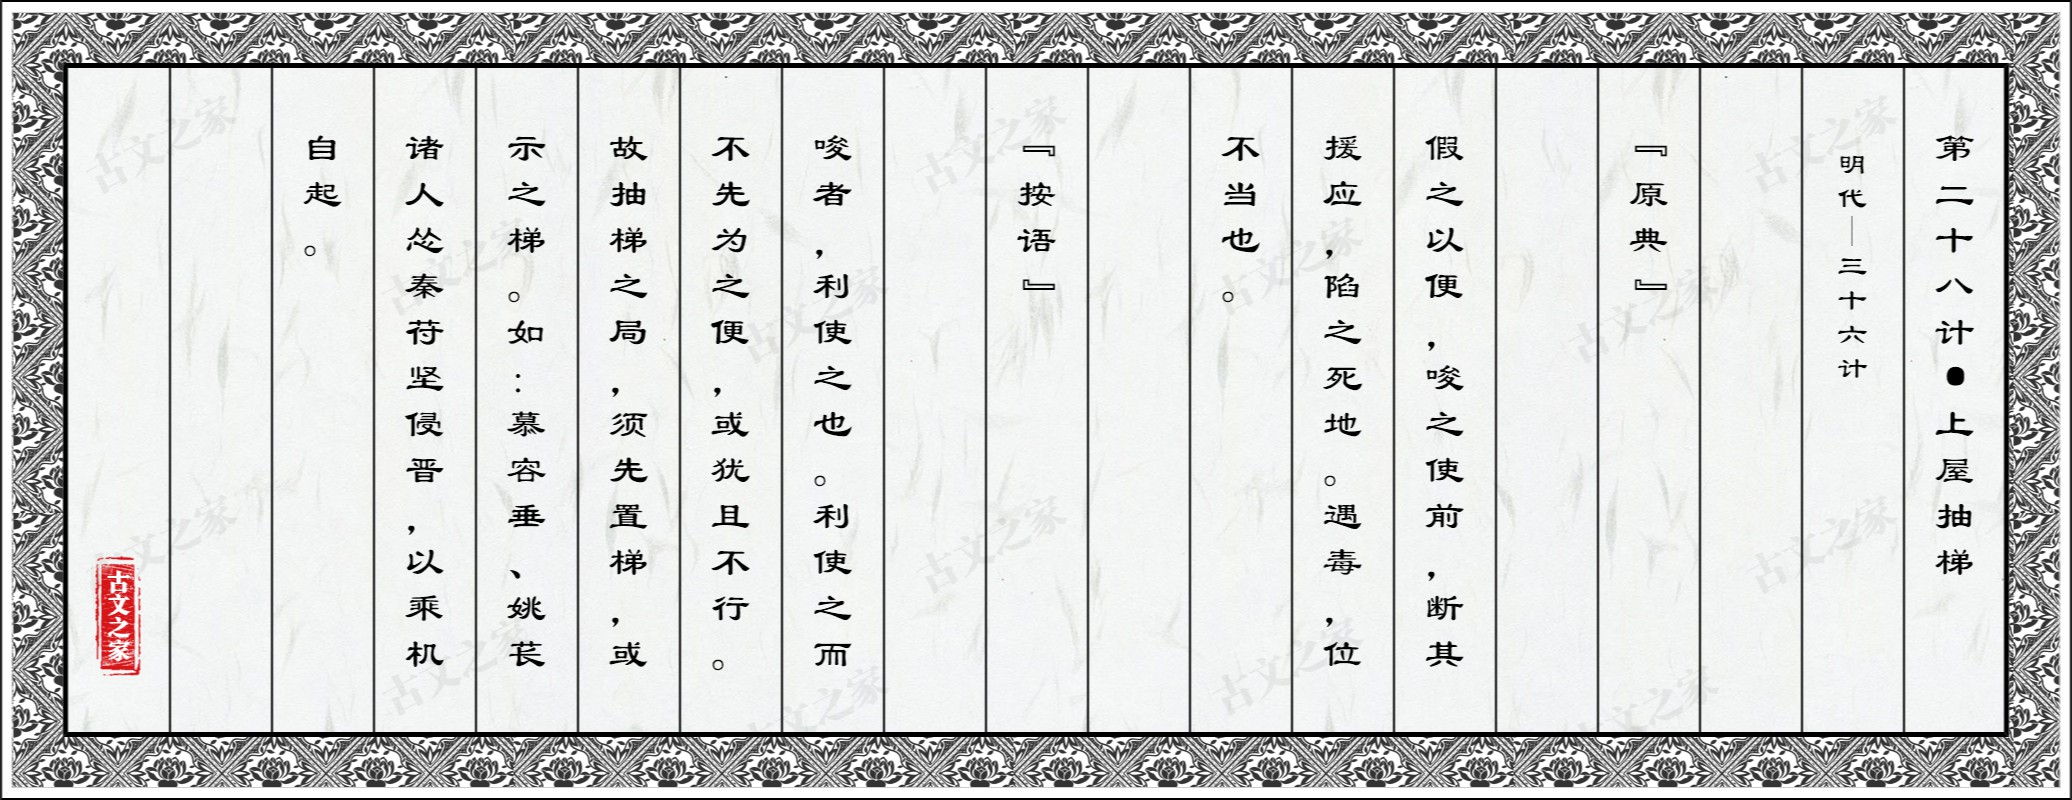 第二十八计●上屋抽梯
明代—三十六计
『原典』
假之以便，唆之使前，断其
援应，陷之死地。遇毒，位
不当也。
『按语』
唆者，利使之也。利使之而
不先为之便，或犹且不行。
故抽梯之局，须先置梯，或
示之梯。如：慕容垂、姚苌
诸人怂秦苻坚侵晋，以乘机
自起。
古文之家